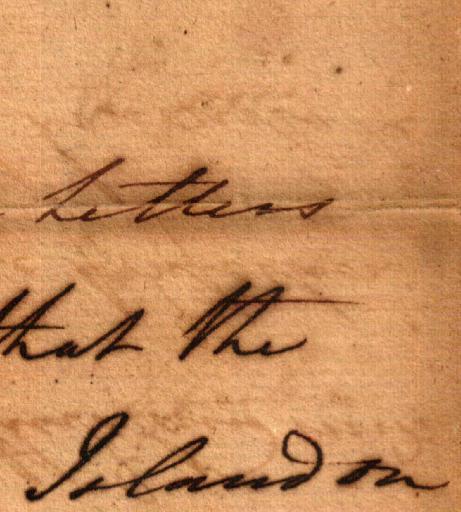 Letters
that the
Island on